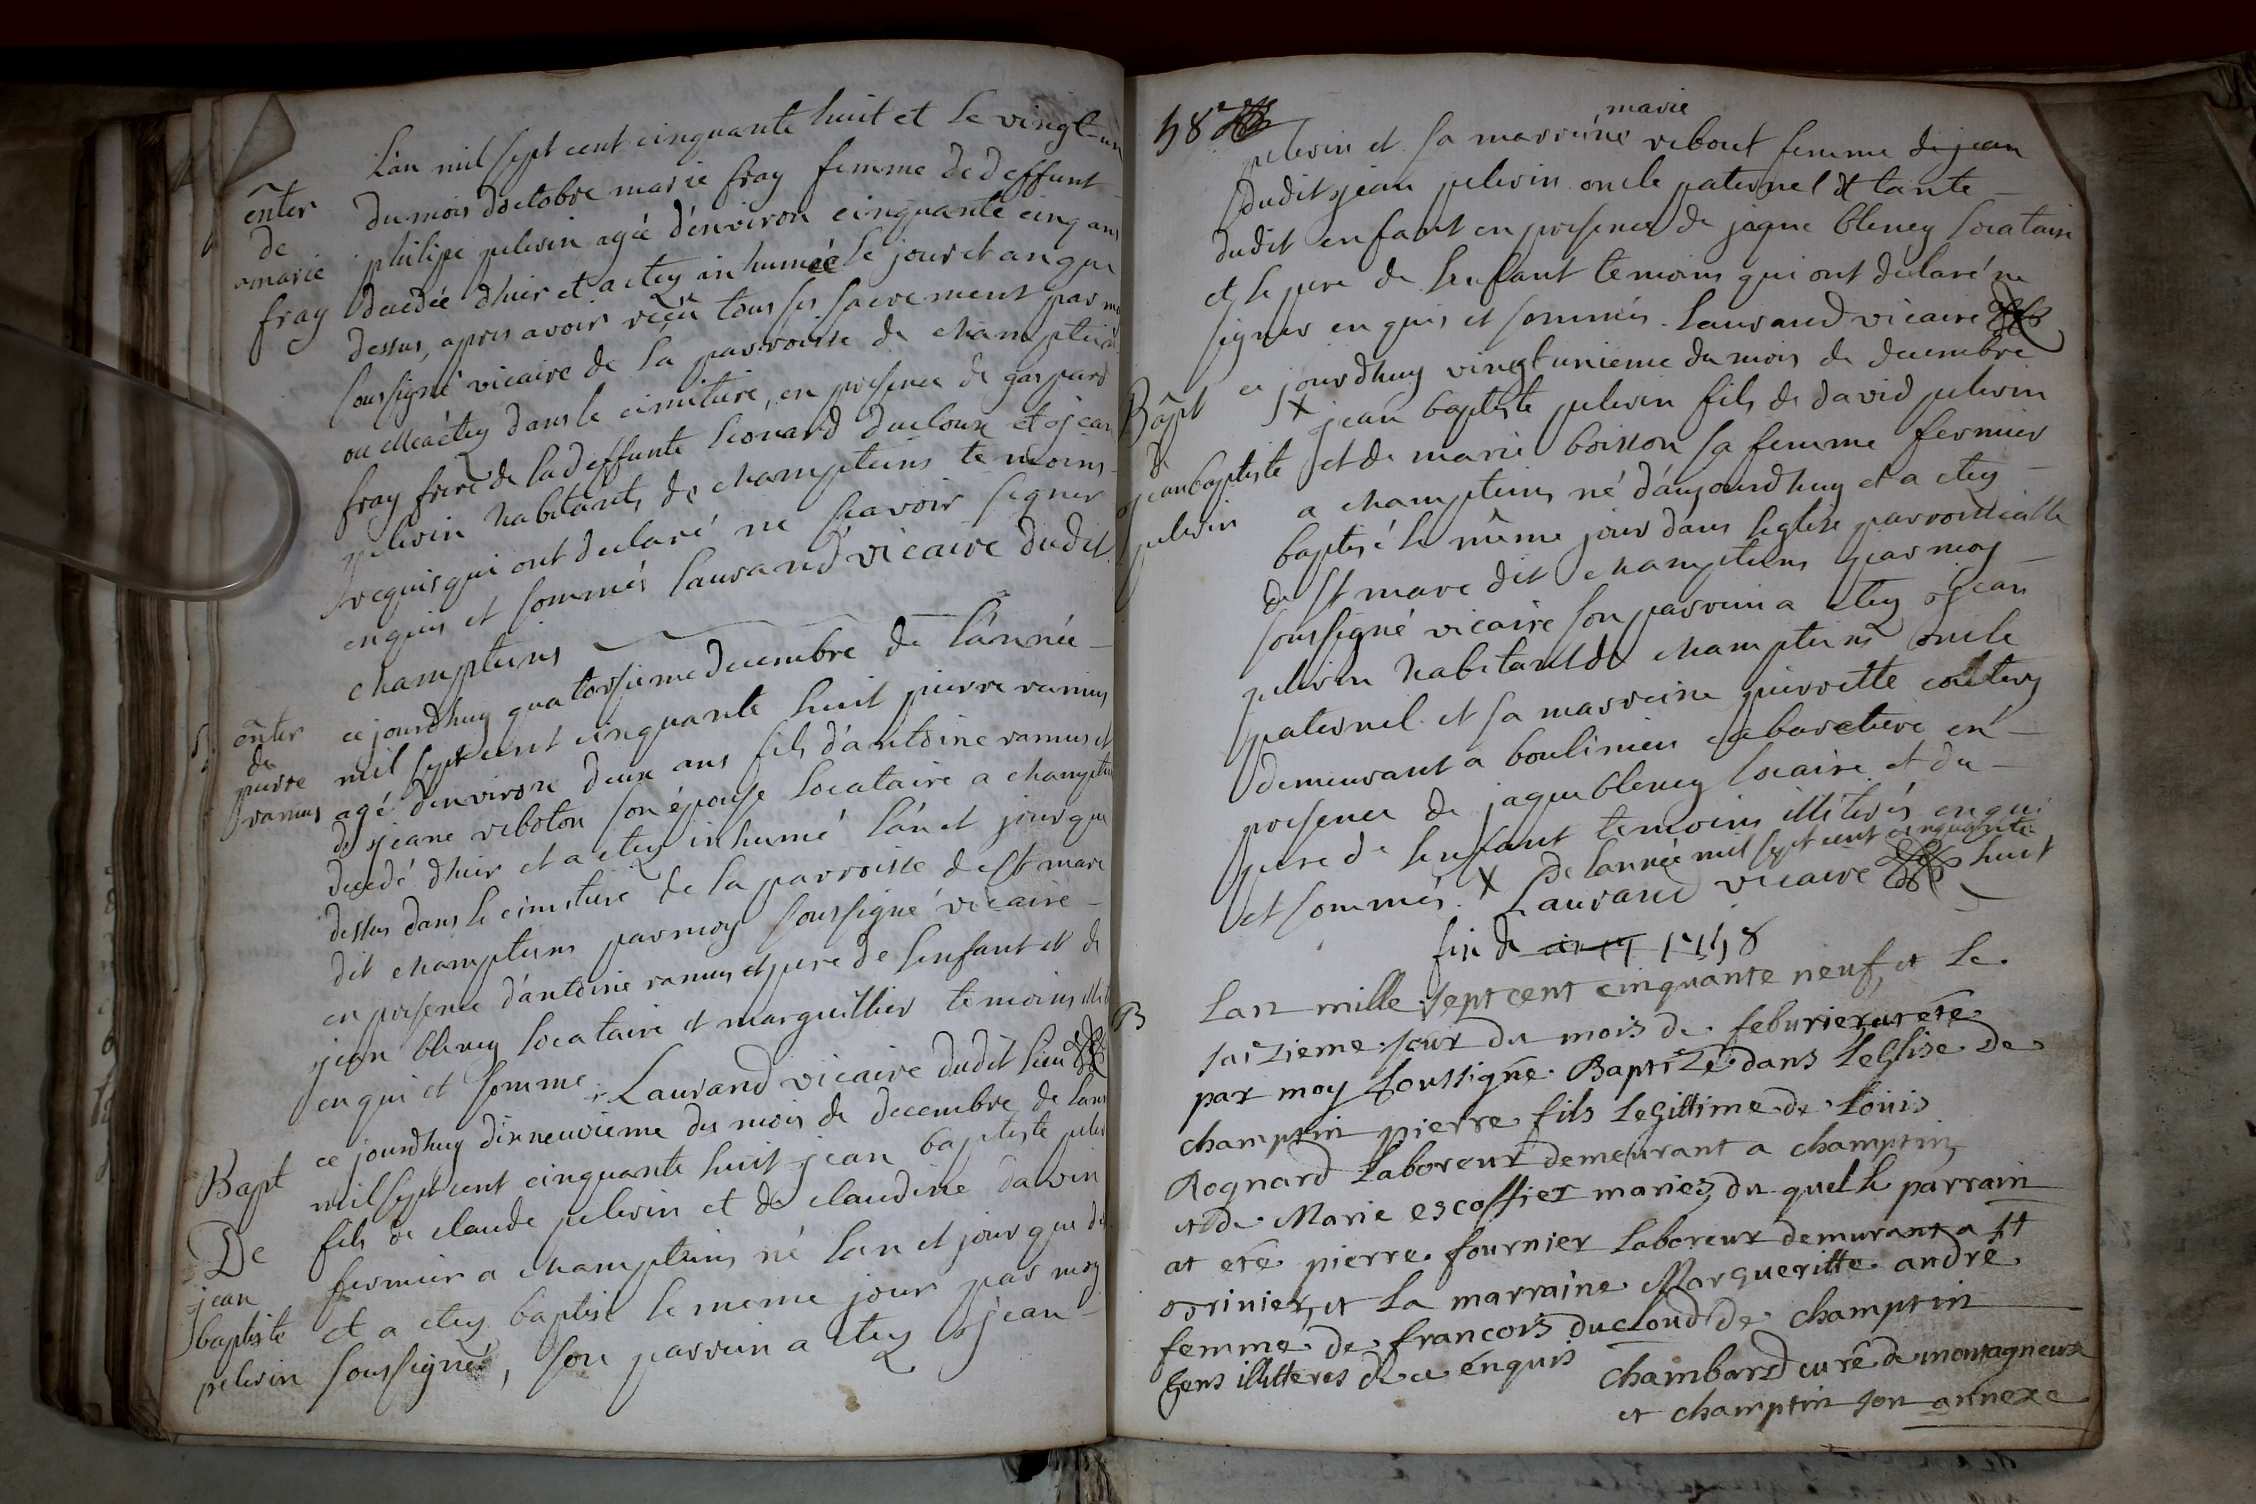 L'an mil sept cent cinquante huit et le vingt-un
enter
de
marie
fray
du mois d'octobre marie fray femme de deffunt
philipe pelerin agée d'environ cinquante cinq ans
decedée d'hier et a etey inhumée le jour et an que
dessus, apres avoir reçu tous ses sacrement par moy
soussigné vicaire de la parroisse de champteins
ou elle a etey dans le cimitiere, en presence de gaspard
fray frere de la deffunte leonard ducloux et jean
pelerin habitants de champteins temoins
requis qui ont declaré ne scavoir signer
enquis et sommés Laurand vicaire dudit
champteins
enter
de
pierre
ramus
ce jourd'huy quatorsieme decembre de l'année
mil sept cent cinquante huit pierre ramus
agé d'environ deux ans fils d'antoine ramus et
de jeane reboton son épouse locataire a champteins
decedé d'hier et a etey inhumé l'an et jour que
dessus dans le cimitiere de la parroisse de st marc
dit champteins par moy soussigné vicaire
en presence d'antoine ramus et pere de lenfant et de
jean bleney locataire et marguillier temoins
enqui et sommé. Laurand vicaire dudit lieu
Bapt
De
jean
baptiste
pelerin
ce jourd'huy dixneuvieme du mois de decembre de
mil sept cent cinquante huit jean baptiste
fils de claude pelerin et de claudine davin
fermier a champteins né lan et jour que
et a etey baptisé le meme jour par moy
soussigné, son parrein a etey jean
58
marie
pelerin et sa marreine rebout femme de jean
dudit jean pelerin oncle paternel et tante
dudit enfant en presence de jaque bleney locataire
et le pere de lenfant temoins qui ont declaré ne
signer enquis et sommés. Laurand vicaire
Bapt
de
jean baptiste
pelerin
ce jourd'huy vingt unieme du mois de decembre
X jean baptiste pelerin fils de david pelerin
et de marie boisson sa femme fermier
a champteins né d'aujourd'huy et a etey
baptisé le même jour dans leglise parroissialle
de st marc dit champteins par moy
soussigné vicaire son parrein a etey jean
pelerin habitant de champteins oncle
paternel et sa marreine pierrette
demeurant a boulinieu cabaretiere en
presence de jaque bleney locaire et du
pere de lenfant temoins illiterés enqui
et sommés. X de lannée mil sept cent cinquante huit
Laurand vicaire
fin de 1758
B
Lan mille sept cent cinquante neuf, et le
saizieme jour du mois de feburier at eté
par moy soussigné Baptizé dans leglise de
champtin pierre fils legittime de Loüis
Rognard Laboreur demeurant a champtin
et de Marie escoffier mariez, du quel le parrain
at eté pierre fournier Laboreur demurant a st
, et la marraine Margueritte andré
femme de francois ducloud de champtin
gens illitteres de ce enquis
chambard curé de montagneux
et champtin son annexe